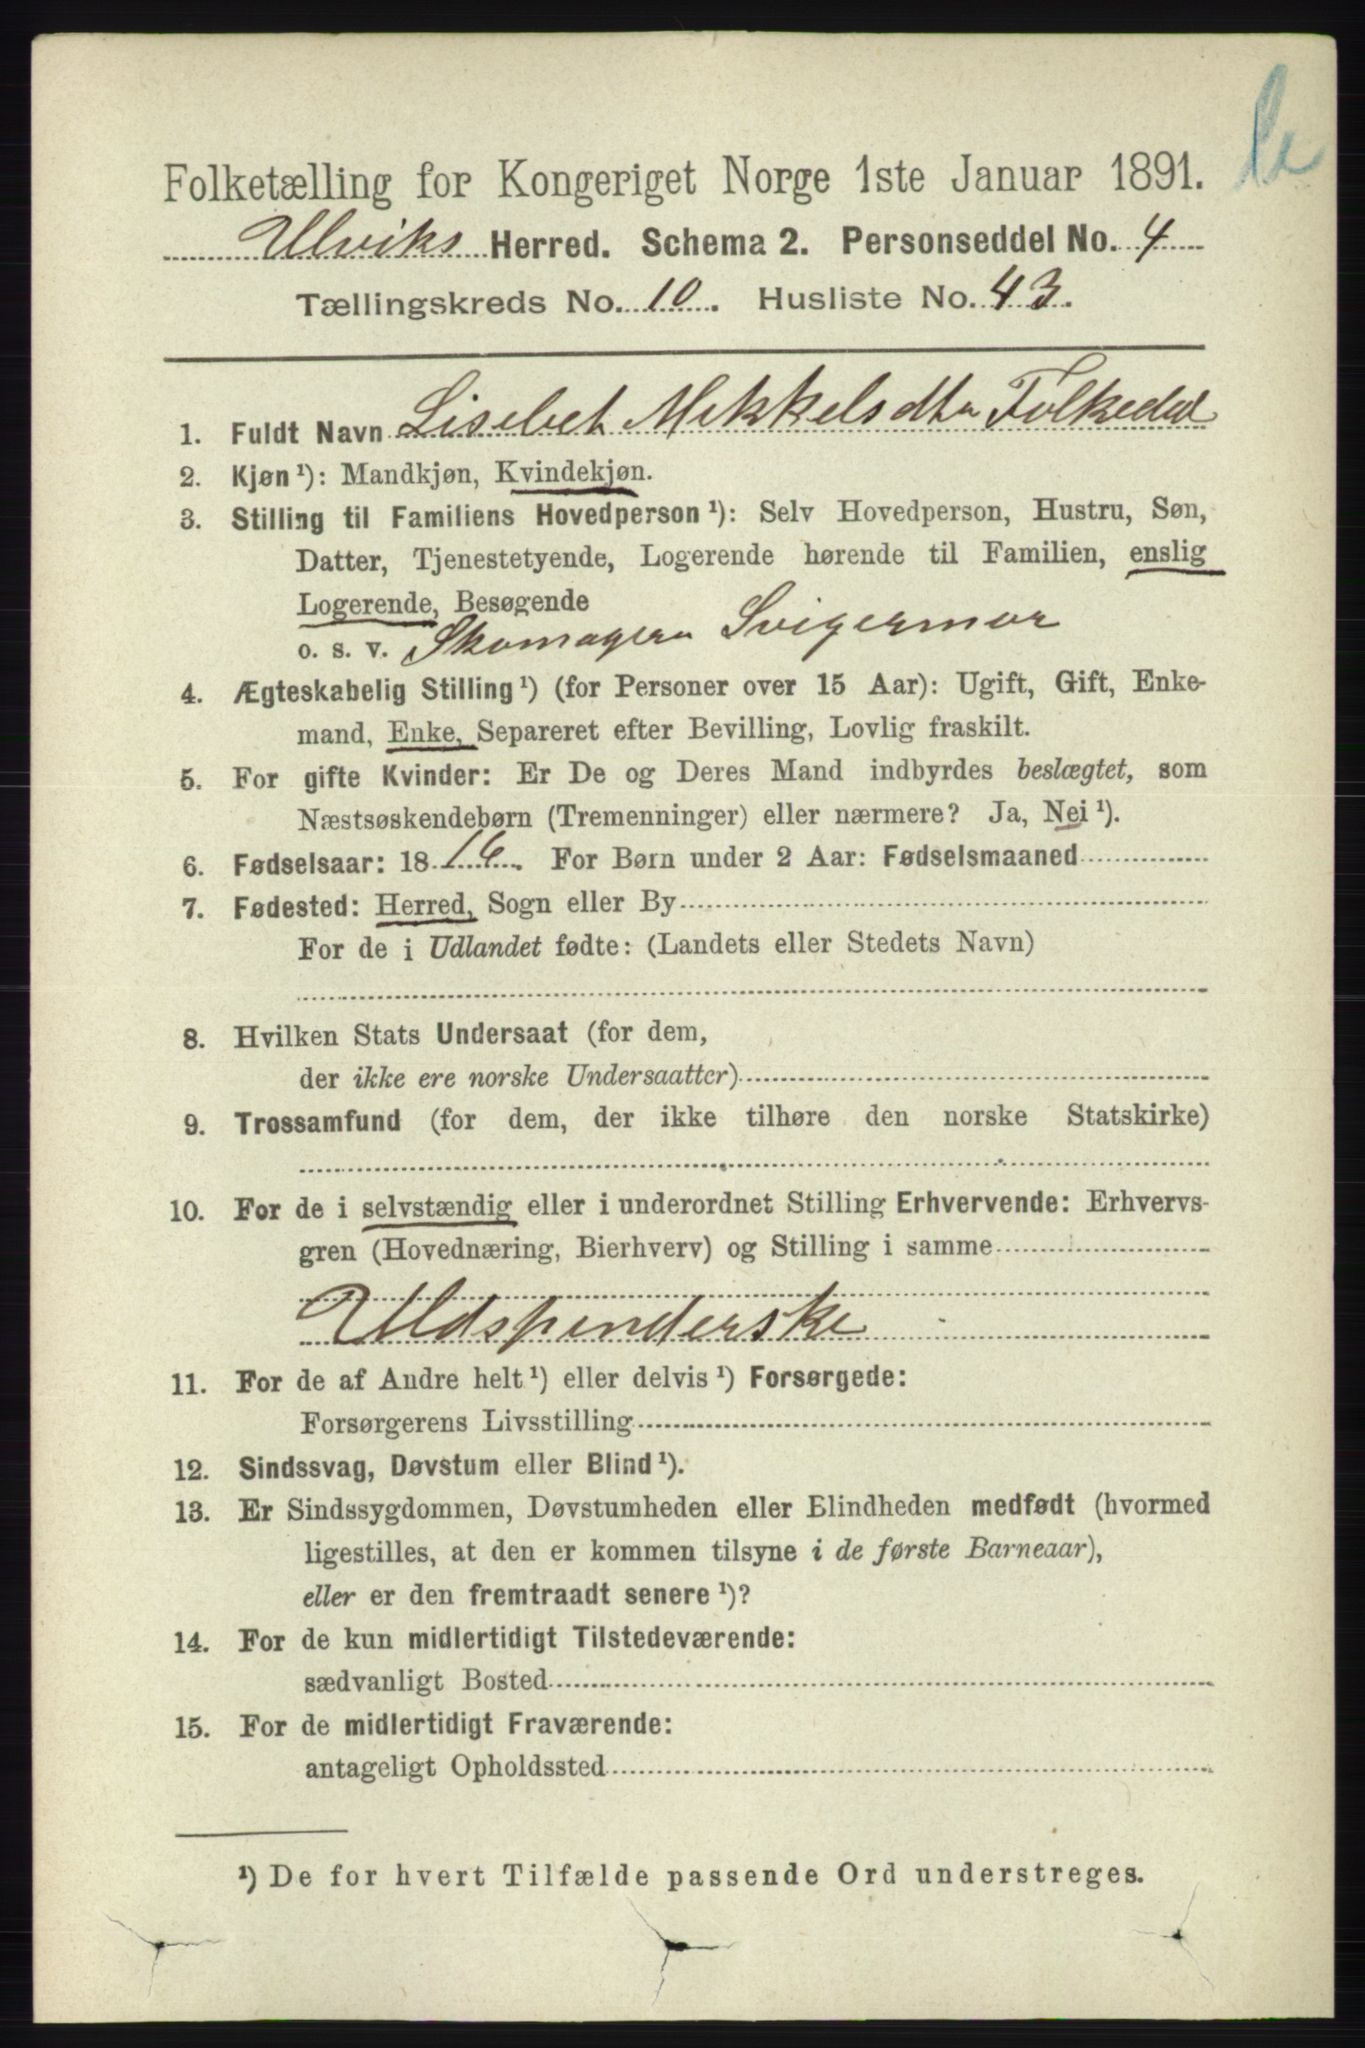 Folketælling for Kongeriget Norge 1ste Januar 1891.
Ulviks Herred. Schema 2. Personseddel No. 4
Tællingskreds No. 10. Husliste No. 43.
1. Fuldt Navn Lisebet Mikkelsdtr Folkedal
2. Kjøn ¹): Mandkjøn, Kvindekjøn.
3. Stilling til Familiens Hovedperson ¹): Selv Hovedperson, Hustru, Søn,
Datter, Tjenestetyende, Logerende hørende til Familien, enslig
Logerende, Besøgende
o. s. v. Skomagers Svigermor
4. Ægteskabelig Stilling ¹) (for Personer over 15 Aar): Ugift, Gift, Enke-
mand, Enke, Separeret efter Bevilling, Lovlig fraskilt.
5. For gifte Kvinder: Er De og Deres Mand indbyrdes beslægtet, som
Næstsøskendebørn (Tremenninger) eller nærmere? Ja, Nei ¹).
6. Fødselsaar: 1816. For Børn under 2 Aar: Fødselsmaaned
7. Fødested: Herred, Sogn eller By
For de i Udlandet fødte: (Landets eller Stedets Navn)
8. Hvilken Stats Undersaat (for dem,
der ikke ere norske Undersaatter)
9. Trossamfund (for dem, der ikke tilhøre den norske Statskirke)
10. For de i selvstændig eller i underordnet Stilling Erhvervende: Erhvervs-
gren (Hovednæring, Bierhverv) og Stilling i samme
Uldspinderske
11. For de af Andre helt ¹) eller delvis ¹) Forsørgede:
Forsørgerens Livsstilling
12. Sindssvag, Døvstum eller Blind ¹).
13. Er Sindssygdommen, Døvstumheden eller Blindheden medfødt (hvormed
ligestilles, at den er kommen tilsyne i de første Barneaar),
eller er den fremtraadt senere ¹)?
14. For de kun midlertidigt Tilstedeværende:
sædvanligt Bosted
15. For de midlertidigt Fraværende:
antageligt Opholdssted
¹) De for hvert Tilfælde passende Ord understreges.